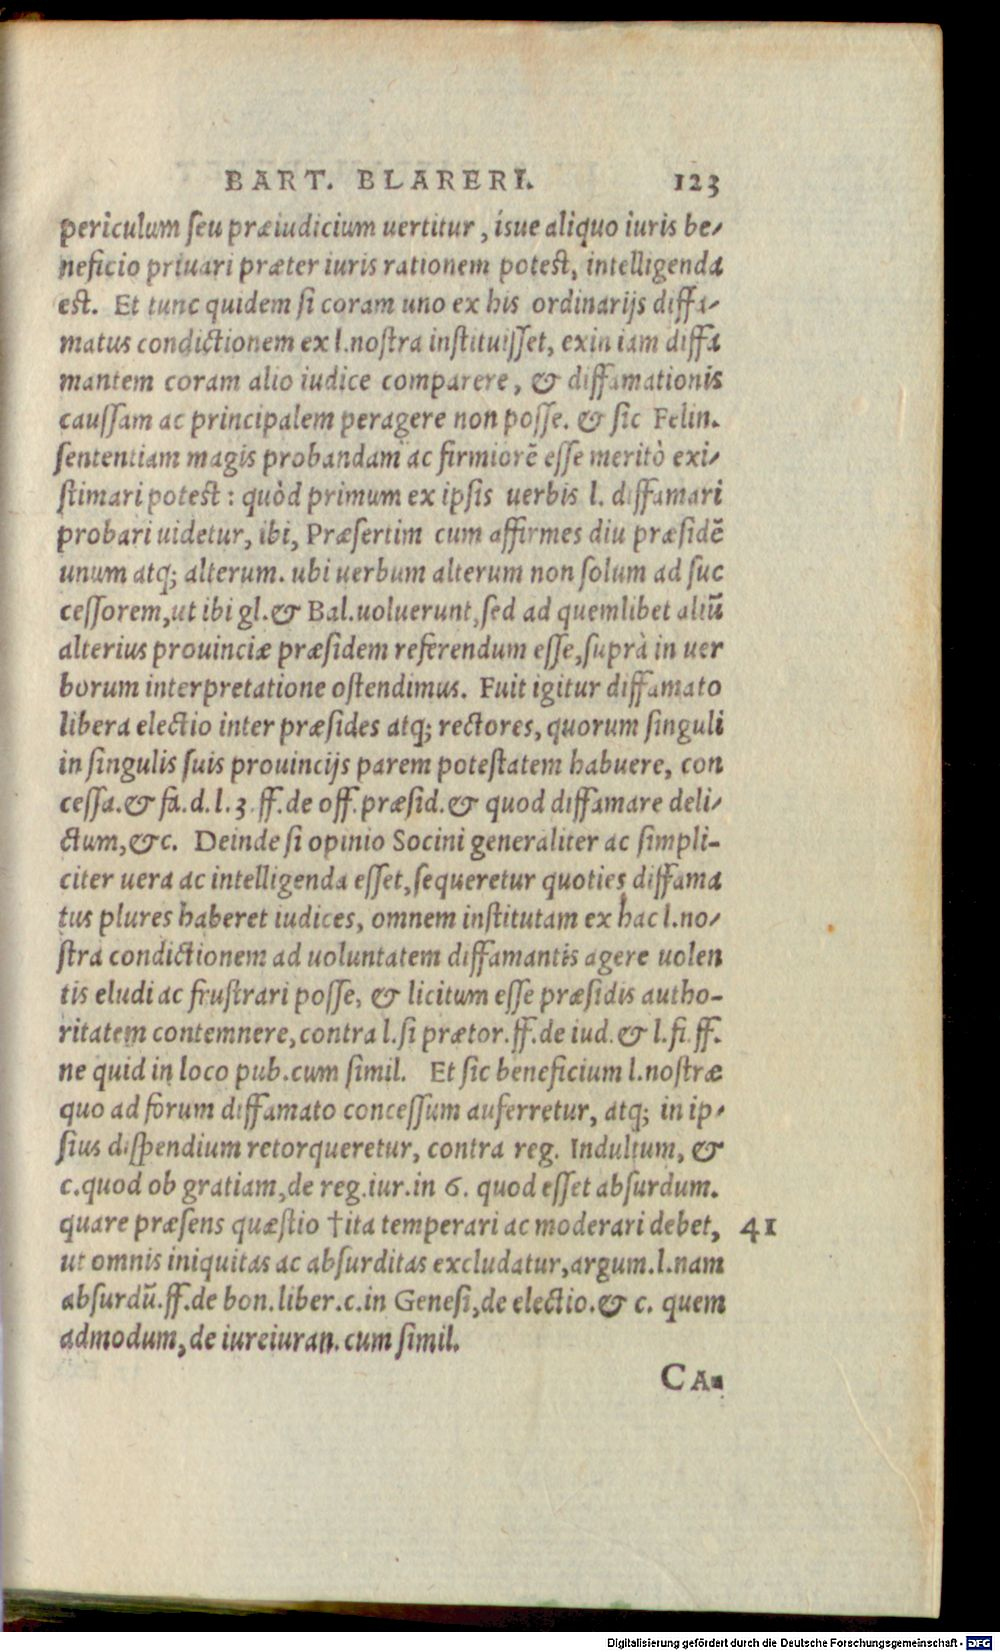 BART. BLARERI. 123
periculum ſeu præiudicium uertitur, iſue aliquo iuris be-
neficio priuari præter iuris rationem poteſt, intelligenda
eſt. Et tunc quidem ſi coram uno ex his ordinarijs diffa-
matus condictionem ex l. noſtra inſtituiſſet, exin iam diffa
mantem coram alio iudice comparere, & diffamationis
cauſſam ac principalem peragere non poſſe. & ſic Felin.
ſententiam magis probandam ac firmiorẽ eſſe meritò exi-
ſtimari poteſt: quòd primum ex ipſis uerbis l. diffamari
probari uidetur, ibi, Præſertim cum affirmes diu præſidẽ
unum atq; alterum. ubi uerbum alterum non ſolum ad ſuc
ceſſorem, ut ibi gl. & Bal. uoluerunt, ſed ad quemlibet aliũ
alterius prouinciæ præſidem referendum eſſe, ſuprà in uer
borum interpretatione oſtendimus. Fuit igitur diffamato
libera electio inter præſides atq; rectores, quorum ſinguli
in ſingulis ſuis prouincijs parem poteſtatem habuere, con
ceſſa. & fa. d. l. 3. ff. de off. præſid. & quod diffamare deli-
ctum, &c. Deinde ſi opinio Socini generaliter ac ſimpli-
citer uera ac intelligenda eſſet, ſequeretur quoties diffama
tus plures haberet iudices, omnem inſtitutam ex hac l. no-
ſtra condictionem ad uoluntatem diffamantis agere uolen
tis eludi ac fruſtrari poſſe, & licitum eſſe præſidis autho-
ritatem contemnere, contra l. ſi prætor. ff. de iud. & l. fi. ff.
ne quid in loco pub. cum ſimil. Et ſic beneficium l. noſtræ
quo ad forum diffamato conceſſum auferretur, atq; in ip-
ſius diſpendium retorqueretur, contra reg. Indultum, &
c. quod ob gratiam, de reg. iur. in 6. quod eſſet abſurdum.
quare præſens quæſtio †ita temperari ac moderari debet, 41
ut omnis iniquitas ac abſurditas excludatur, argum. l. nam
abſurdũ. ff. de bon. liber. c. in Geneſi, de electio. & c. quem
admodum, de iureiuran. cum ſimil.
CA-
Digitalisierung gefördert durch die Deutsche Forschungsgemeinschaft - DFG